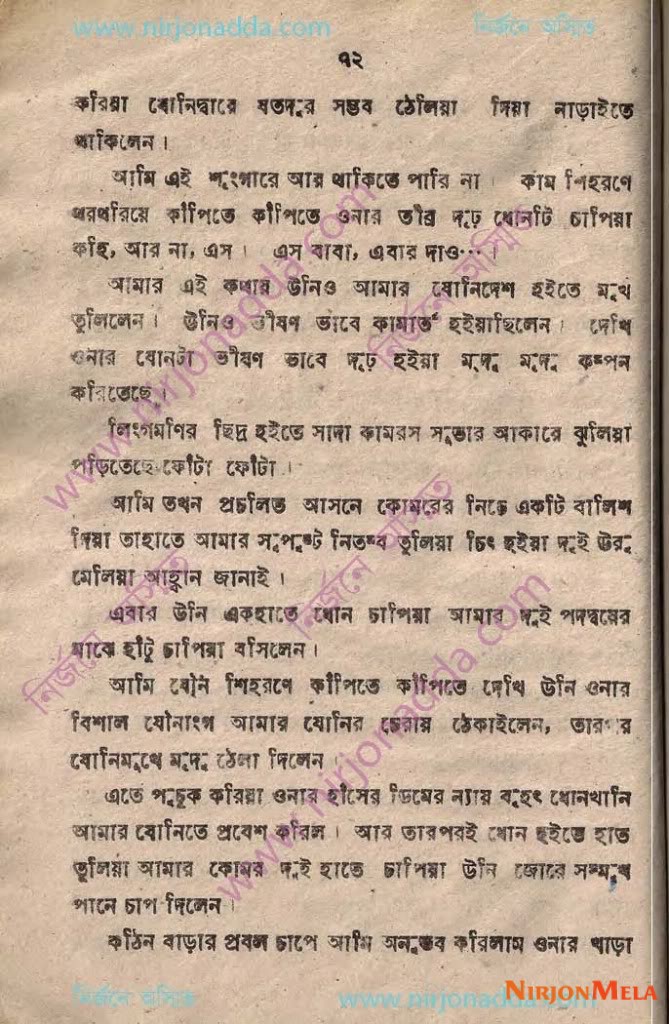 www.nirjonadda.com
নির্জনে অস্মিত
৭২
করিয়া যোনিদ্বারে যতদূর সম্ভব ঠেলিয়া দিয়া নাড়াইতে
থাকিলেন।
আমি এই শৃংগারে আর থাকিতে পারি না। কাম শিহরণে
থরথরিয়ে কাঁপিতে কাঁপিতে ওনার তীব্র দৃঢ় ধোনটি চাপিয়া
কহি, আর না, এস। এস বাবা, এবার দাও…।
আমার এই কথার উনিও আমার যোনিদেশ হইতে মুখ
তুলিলেন। উনিও ভীষণ ভাবে কামার্ত হইয়াছিলেন। দেখি
ওনার ধোনটা ভীষণ ভাবে দৃঢ় হইয়া মৃদু মৃদু কম্পন
করিতেছে।
লিংগমণির ছিদ্র হইতে সাদা কামরস সুতার আকারে ঝুলিয়া
পড়িতেছে ফোঁটা ফোঁটা।
আমি তখন প্রচলিত আসনে কোমরের নিচে একটি বালিশ
দিয়া তাহাতে আমার সুপুষ্ট নিতম্ব তুলিয়া চিৎ হইয়া দুই ঊরু
মেলিয়া আহ্বান জানাই।
এবার উনি একহাতে ধোন চাপিয়া আমার দুই পদদ্বয়ের
মাঝে হাঁটু চাপিয়া বসিলেন।
আমি যৌন শিহরণে কাঁপিতে কাঁপিতে দেখি উনি ওনার
বিশাল যৌনাংগ আমার যোনির চেরায় ঠেকাইলেন, তারপর
যোনিমুখে মৃদু ঠেলা দিলেন।
এতে পুচুক করিয়া ওনার হাঁসের ডিমের ন্যায় বৃহৎ ধোনখানি
আমার যোনিতে প্রবেশ করিল। আর তারপরই ধোন হইতে হাত
তুলিয়া আমার কোমর দুই হাতে চাপিয়া উনি জোরে সম্মুখ
পানে চাপ দিলেন।
কঠিন বাড়ার প্রবল চাপে আমি অনুভব করিলাম ওনার খাড়া
www.nirjonadda.com
নির্জনে অস্মিত
নির্জনে অস্মিত
নির্জনে অস্মিত
নির্জনে অস্মিত
www.nirjonadda.com
নির্জনে অস্মিত
www.nirjonadda.com
NIRJONMELA